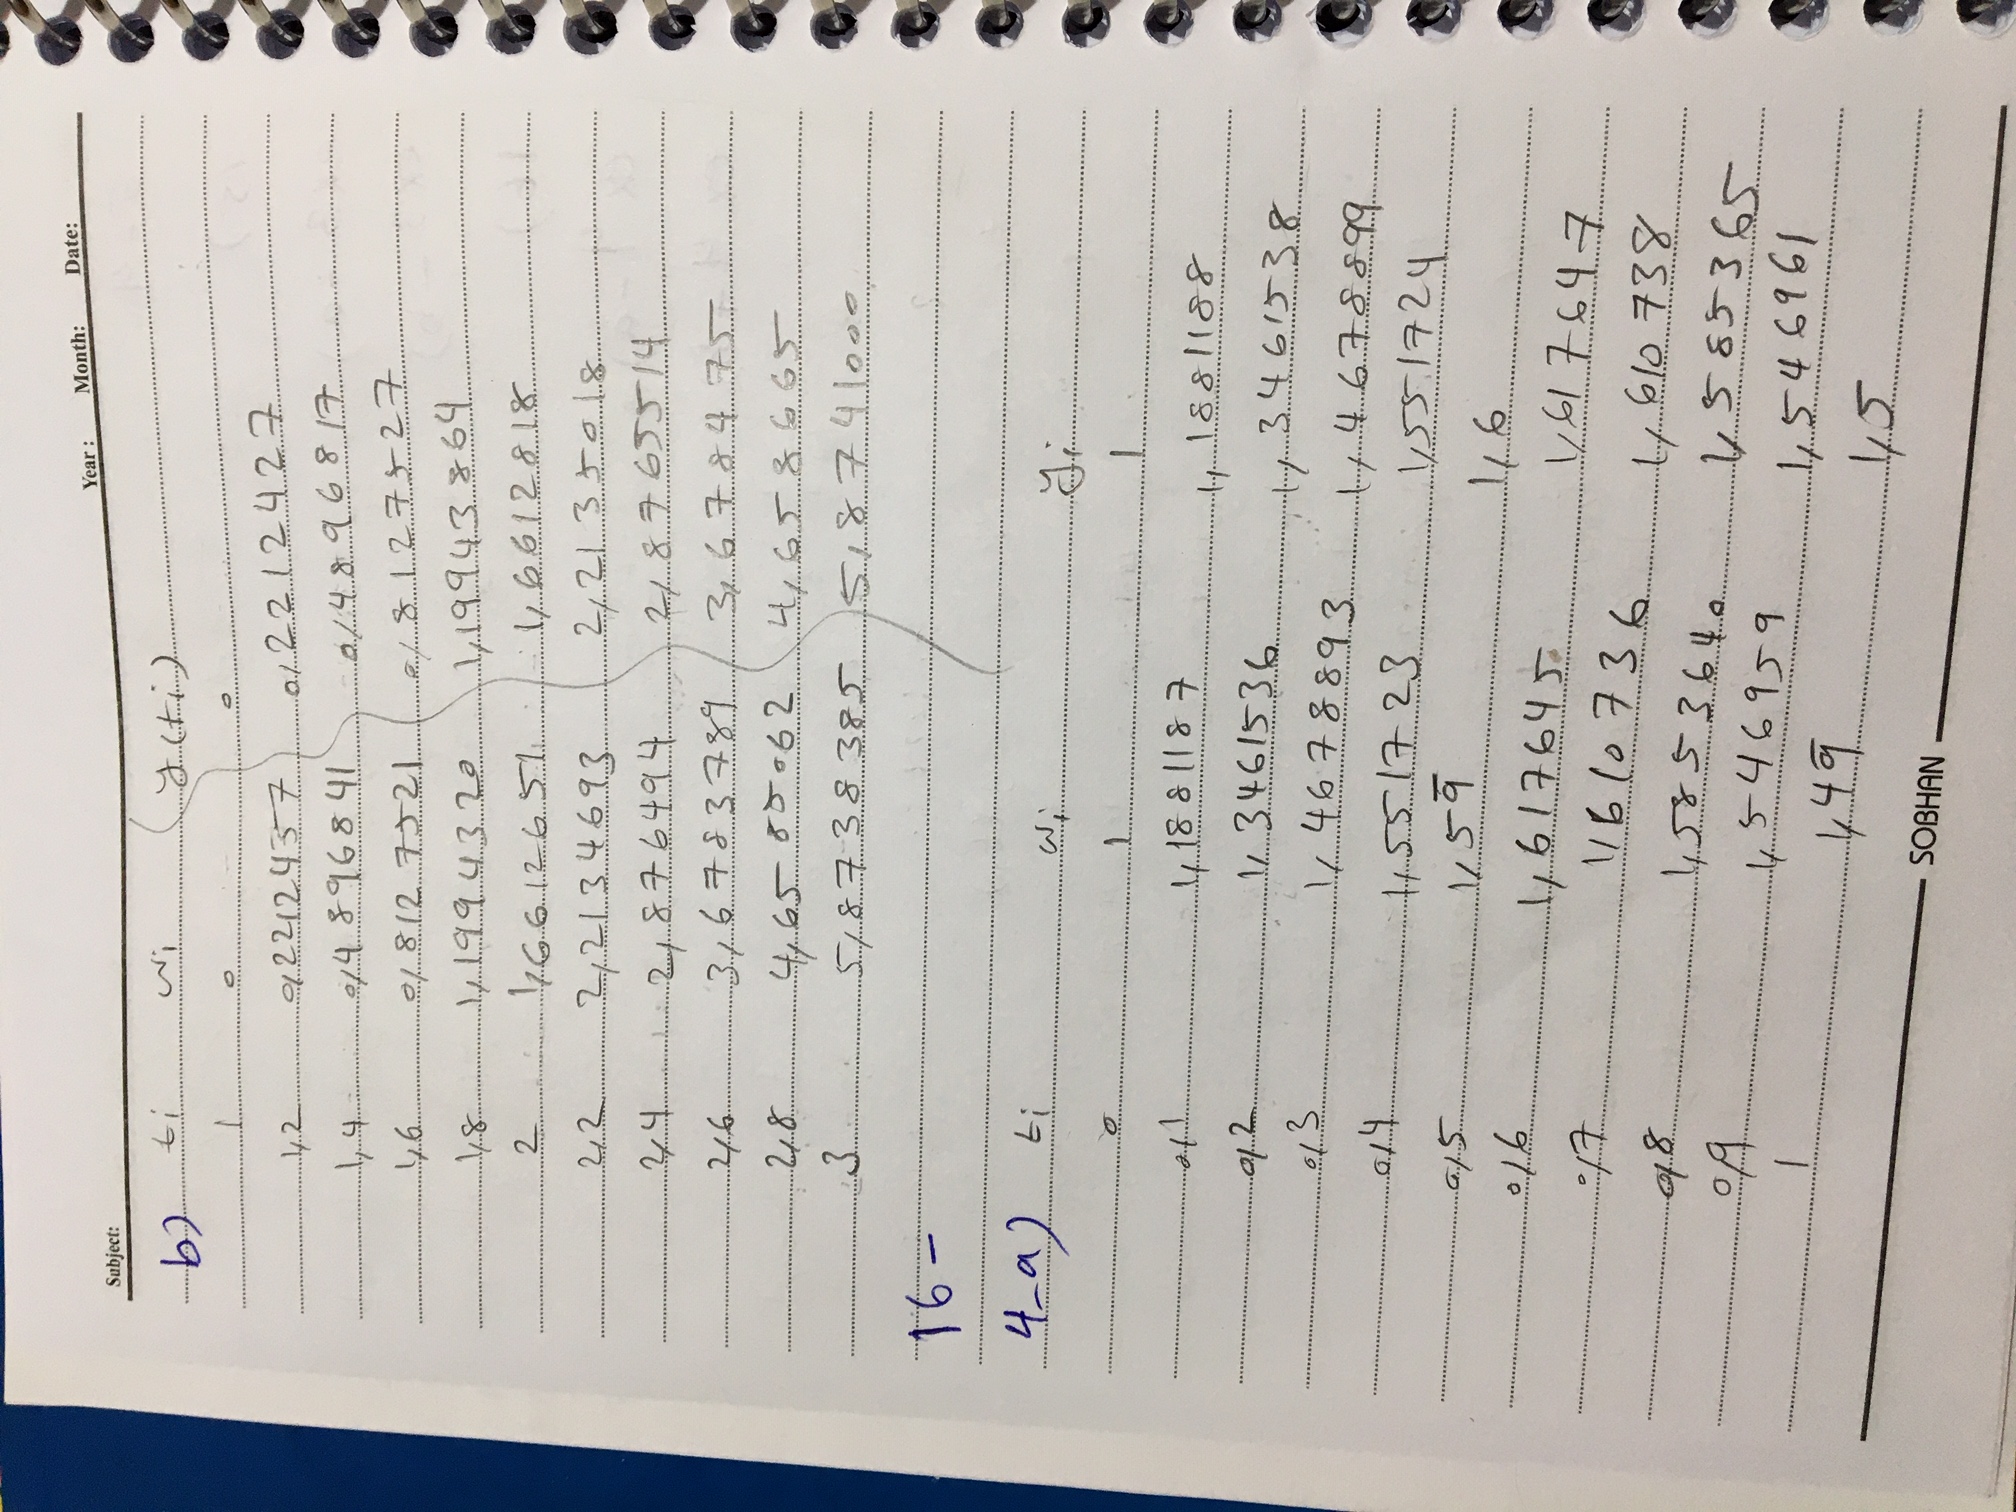 Subject: Year: Month: Date:
b) ti wi y(ti)
1 0 0
1,2 0,2212457 0,2212427
1,4 0,4896841 0,4896817
1,6 0,8127521 0,8127527
1,8 1,1994320 1,19943864
2 1,6612651 1,6612818
2,2 2,2134693 2,2135018
2,4 2,8776494 2,8765514
2,6 3,6783789 3,6784475
2,8 4,6585062 4,658665
3 5,8738385 5,8741000
16-
4-a) ti wi yi
0 1 1
0,1 1,1881187 1,1881188
0,2 1,3461536 1,3461538
0,3 1,4678893 1,4678899
0,4 1,5517723 1,551724
0,5 1,59̅ 1,6
0,6 1,617645 1,617647
0,7 1,610736 1,610738
0,8 1,5853640 1,585365
0,9 1,546959 1,546961
1 1,49̅ 1,5
SOBHAN